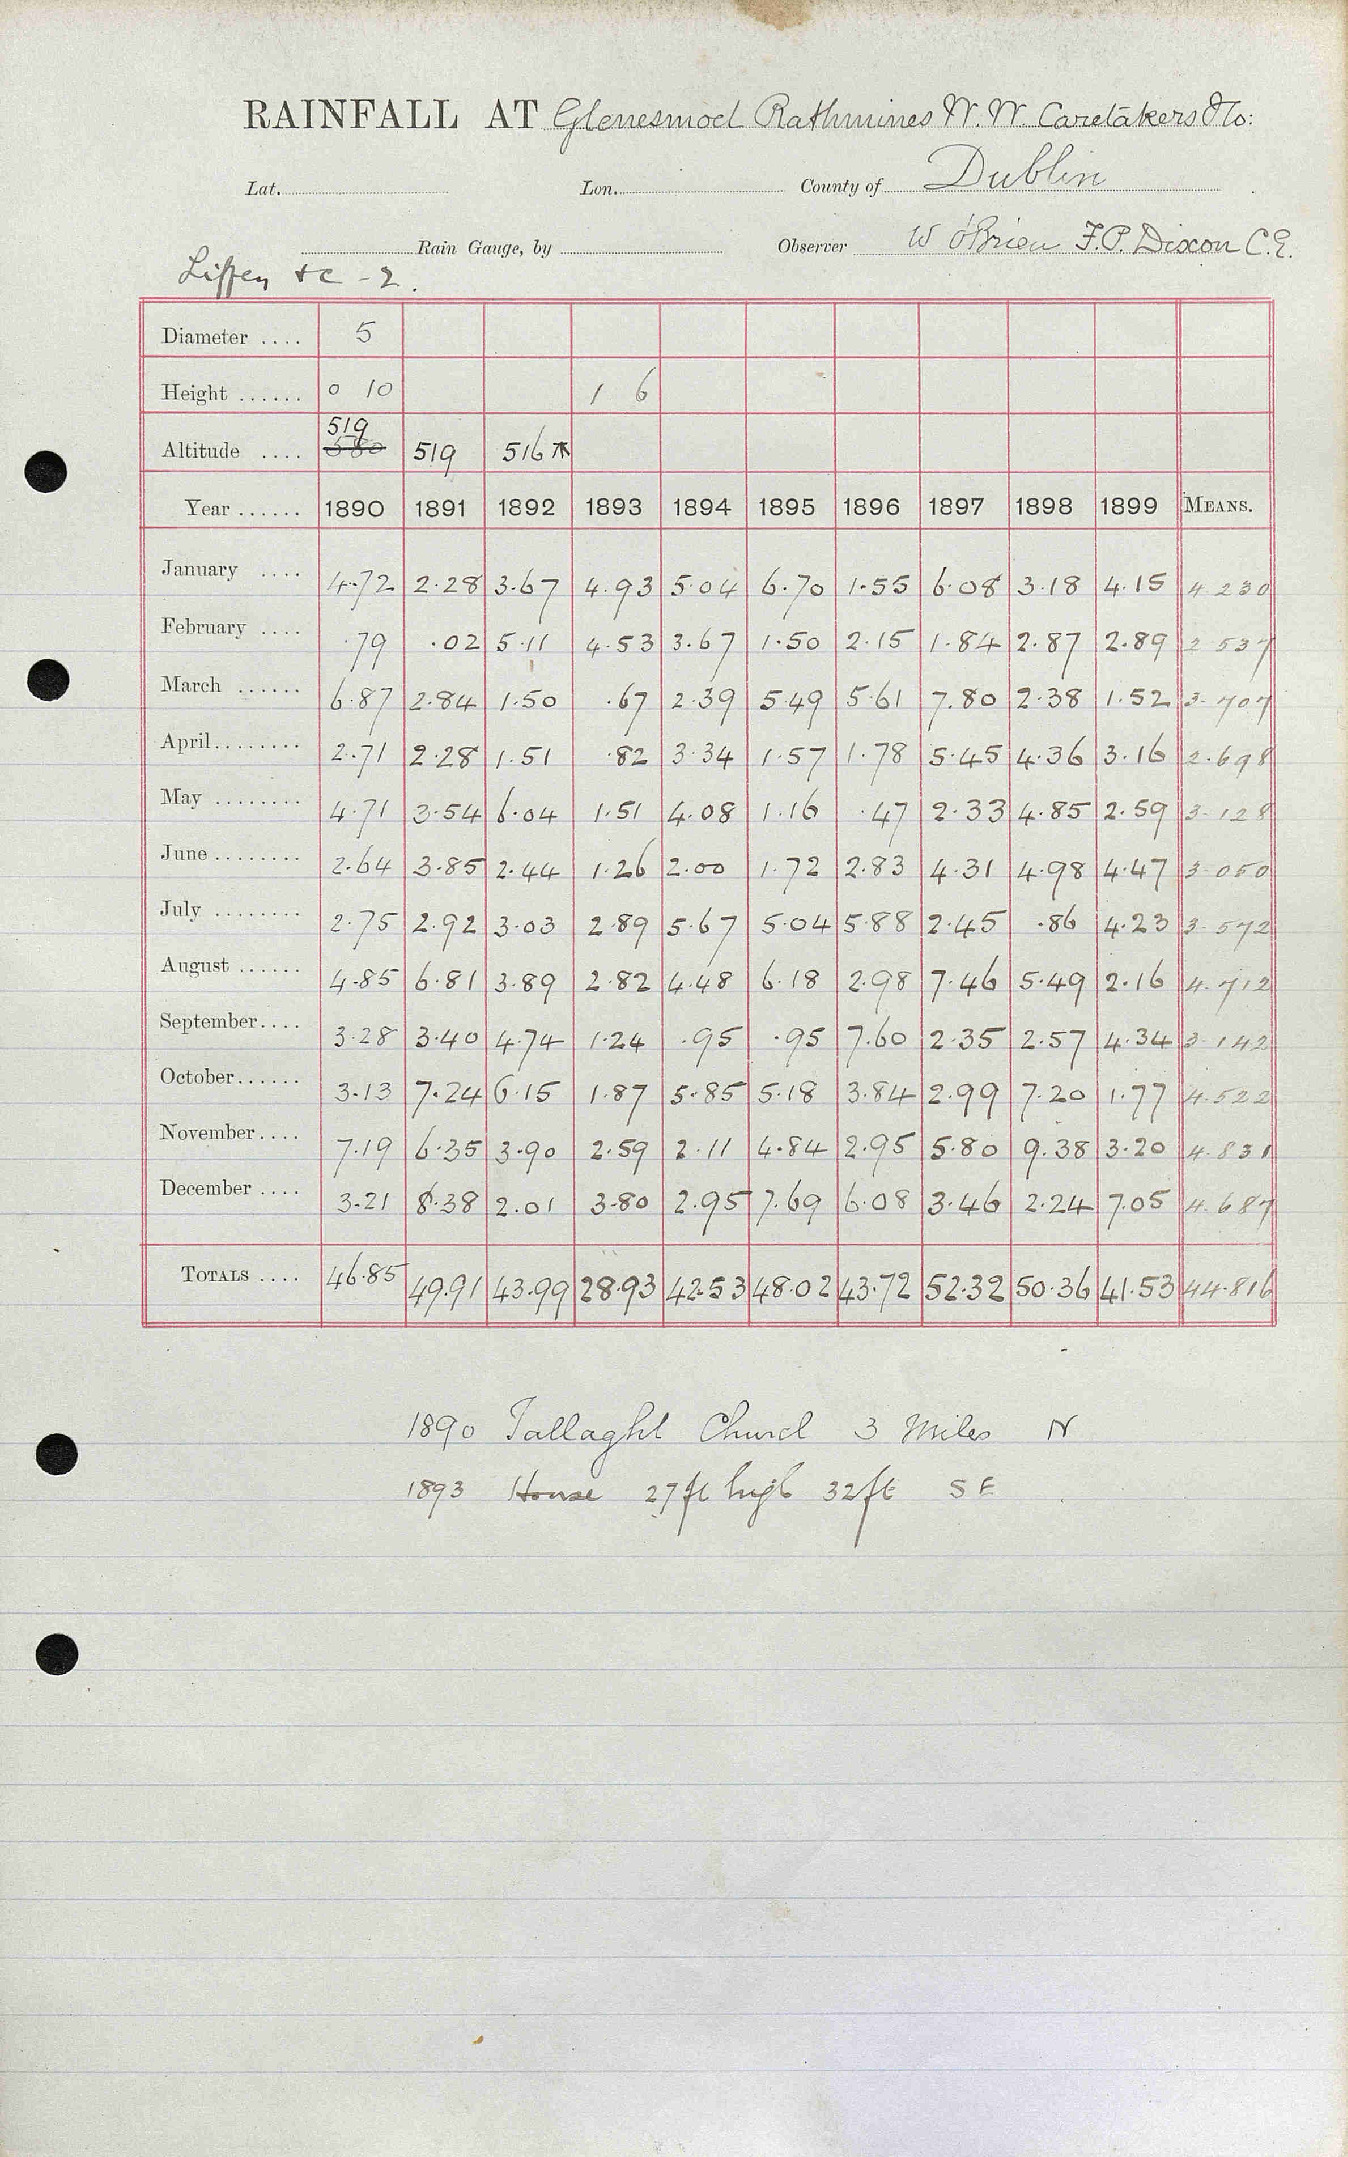 RAINFALL AT Glenesmoel Rathmines W. W. Caretakers Ho:
Lat. Lon. County of Dublin
Rain Gauge, by Observer W O'Brien F.P. Dixon C.E.
Liffey &c - 2.
Diameter .... 5
Height ...... 0 10 1 6
519
Altitude .... 580 519 516
Year ...... 1890 1891 1892 1893 1894 1895 1896 1897 1898 1899 MEANS.
January .... 4.72 2.28 3.67 4.93 5.04 6.70 1.55 6.08 3.18 4.15 4.230
February .... .79 .02 5.11 4.53 3.67 1.50 2.15 1.84 2.87 2.89 2.537
March ...... 6.87 2.84 1.50 .67 2.39 5.49 5.61 7.80 2.38 1.52 3.707
April........ 2.71 2.28 1.51 .82 3.34 1.57 1.78 5.45 4.36 3.16 2.698
May ........ 4.71 3.54 6.04 1.51 4.08 1.16 .47 2.33 4.85 2.59 3.128
June........ 2.64 3.85 2.44 1.26 2.00 1.72 2.83 4.31 4.98 4.47 3.050
July ........ 2.75 2.92 3.03 2.89 5.67 5.04 5.88 2.45 .86 4.23 3.572
August ...... 4.85 6.81 3.89 2.82 4.48 6.18 2.98 7.46 5.49 2.16 4.712
September.... 3.28 3.40 4.74 1.24 .95 .95 7.60 2.35 2.57 4.34 3.142
October...... 3.13 7.24 6.15 1.87 5.85 5.18 3.84 2.99 7.20 1.77 4.522
November.... 7.19 6.35 3.90 2.59 2.11 4.84 2.95 5.80 9.38 3.20 4.831
December .... 3.21 8.38 2.01 3.80 2.95 7.69 6.08 3.46 2.24 7.05 4.687
TOTALS .... 46.85 49.91 43.99 28.93 42.53 48.02 43.72 52.32 50.36 41.53 44.816
1890 Tallaght Church 3 Miles N
1893 House 27ft high 32ft SE